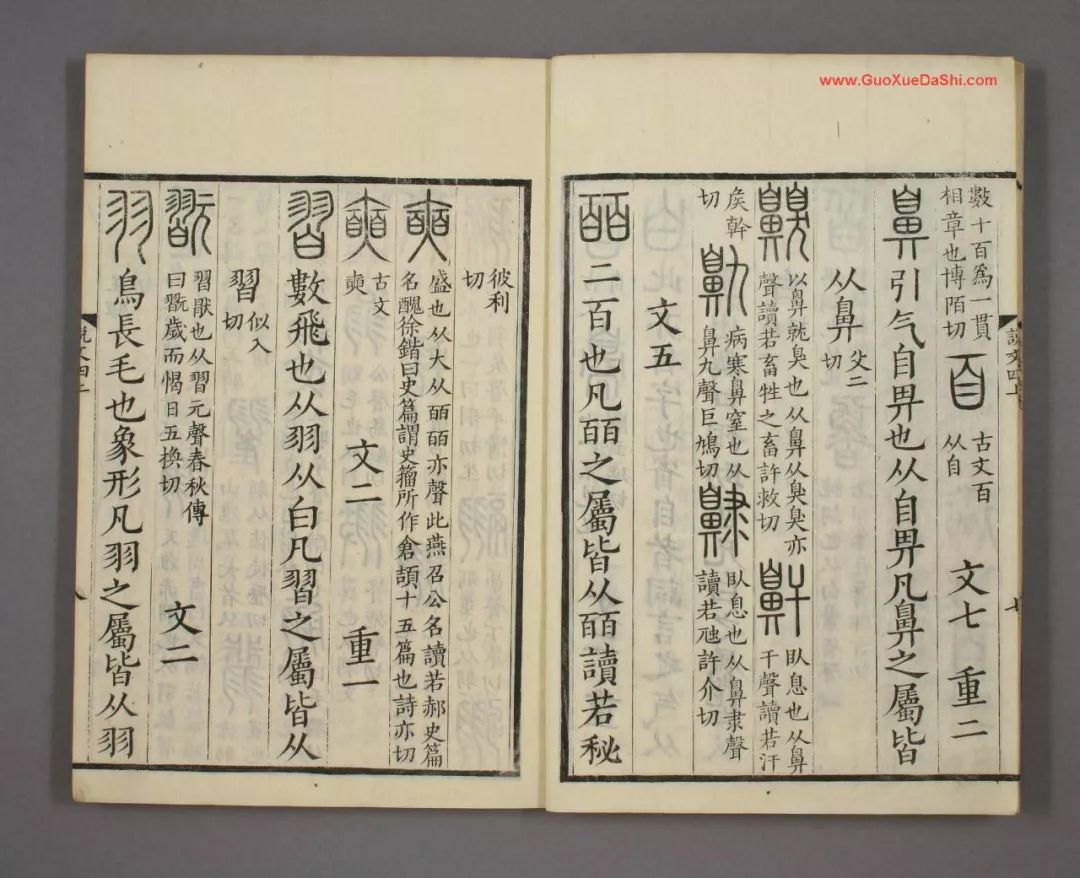 www.GuoXueDaShi.com
數十百爲一貫
相章也博陌切
百
古文百
从自
文七 重二
鼻引气自畀也从自畀凡鼻之屬皆
从鼻
父二
切
齅
以鼻就臭也从鼻从臭臭亦
聲讀若畜牲之畜許救切
鼾
臥息也从鼻
干聲讀若汗
矦幹
切
鼽
病寒鼻窒也从
鼻九聲巨鳩切
䶅
臥息也从鼻隶聲
讀若虺許介切
文五
皕二百也凡皕之屬皆从皕讀若秘
說文四上
七
彼利
切
奭
盛也从大从皕皕亦聲此燕召公名讀若郝史篇
名醜徐鍇曰史篇謂史籀所作倉頡十五篇也詩亦切
𡚌
古文
奭
文二 重一
習數飛也从羽从白凡習之屬皆从
習
似入
切
翫
習猒也从習元聲春秋傳
曰翫歲而愒日五換切
文二
羽鳥長毛也象形凡羽之屬皆从羽
說文四上
八